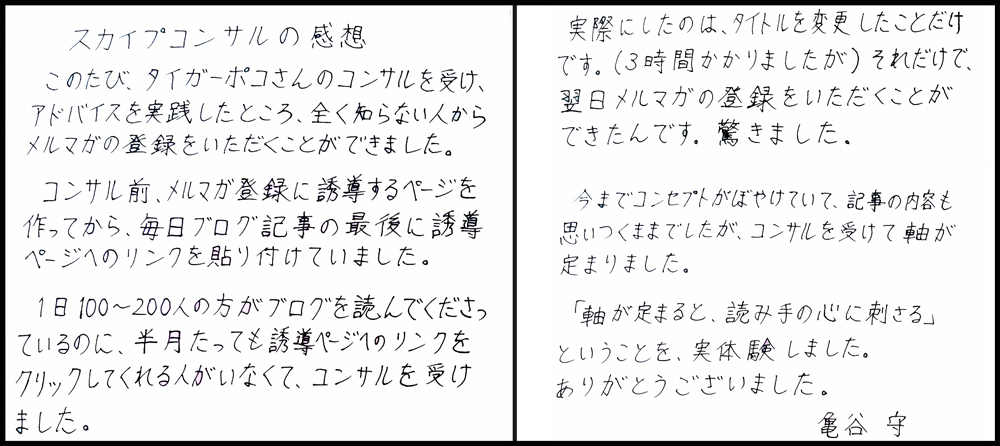 スカイプコンサルの感想
このたび、タイガーポコさんのコンサルを受け、
アドバイスを実践したところ、全く知らない人から
メルマガの登録をいただくことができました。
コンサル前、メルマガ登録に誘導するページを
作ってから、毎日ブログ記事の最後に誘導
ページへのリンクを貼り付けていました。
1日100～200人の方がブログを読んでくださっ
ているのに、半月たっても誘導ページへのリンクを
クリックしてくれる人がいなくて、コンサルを受け
ました。
実際にしたのは、タイトルを変更したことだけ
です。(3時間かかりましたが)それだけで、
翌日メルマガの登録をいただくことが
できたんです。驚きました。
今までコンセプトがぼやけていて、記事の内容も
思いつくままでしたが、コンサルを受けて軸が
定まりました。
「軸が定まると、読み手の心に刺さる」
ということを、実体験しました。
ありがとうございました。
亀谷 守